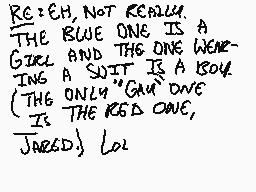 RE: EH, NOT REALLY.
THE BLUE ONE IS A
GIRL AND THE ONE WEAR-
ING A SUIT IS A BOY.
(THE ONLY "GAY" ONE
IS THE RED ONE,
JARED.) LOL